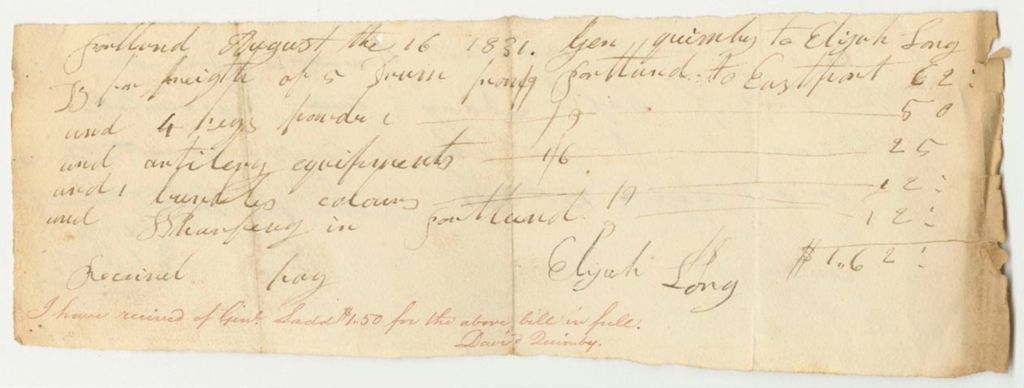 Portland August the 16 1831. Gen quimby to Elijah Long
for freigth of 5 Drum from Portland to Eastport 62:
and 4 cegs powder 50
and artilery equipments 25
and 1 bundles colours 12:
and Wharfeng in Portland 12:
$1.62:
Received pay Elijah Long
I have received of Genl. Ladd $1.50 for the above bill in full.
David Quimby.